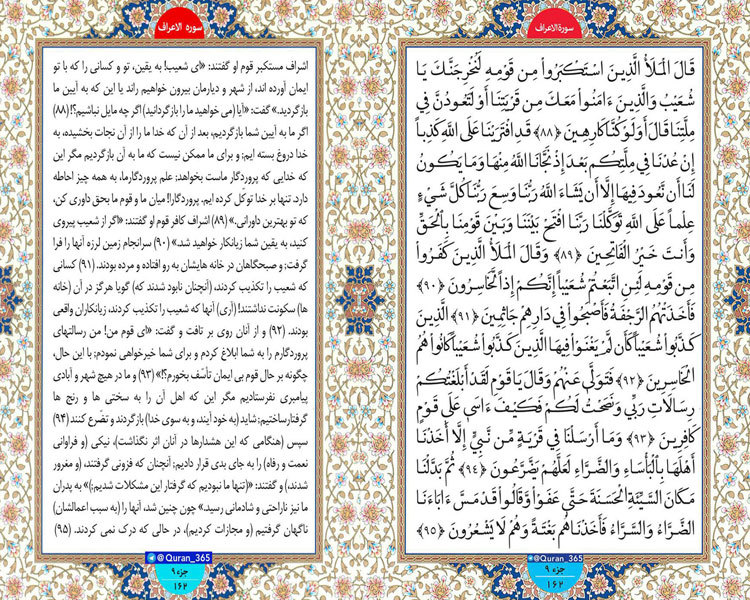 سورة الاعراف
قَالَ الْمَلَأُ الَّذِينَ اسْتَكْبَرُوا مِن قَوْمِهِ لَنُخْرِجَنَّكَ يَا
شُعَيْبُ وَالَّذِينَ ءَامَنُوا مَعَكَ مِن قَرْيَتِنَا أَوْ لَتَعُودُنَّ فِي
مِلَّتِنَا قَالَ أَوَلَوْ كُنَّا كَارِهِينَ ﴿۸۸﴾ قَدِ افْتَرَيْنَا عَلَى اللَّهِ كَذِباً
إِنْ عُدْنَا فِي مِلَّتِكُم بَعْدَ إِذْ نَجَّانَا اللَّهُ مِنْهَا وَمَا يَكُونُ
لَنَا أَن نَّعُودَ فِيهَا إِلَّا أَن يَشَاءَ اللَّهُ رَبُّنَا وَسِعَ رَبُّنَا كُلَّ شَيْءٍ
عِلْماً عَلَى اللَّهِ تَوَكَّلْنَا رَبَّنَا افْتَحْ بَيْنَنَا وَبَيْنَ قَوْمِنَا بِالْحَقِّ
وَأَنتَ خَيْرُ الْفَاتِحِينَ ﴿۸۹﴾ وَقَالَ الْمَلَأُ الَّذِينَ كَفَرُوا
مِن قَوْمِهِ لَئِنِ اتَّبَعْتُمْ شُعَيْباً إِنَّكُمْ إِذاً لَّخَاسِرُونَ ﴿۹۰﴾
فَأَخَذَتْهُمُ الرَّجْفَةُ فَأَصْبَحُوا فِي دَارِهِمْ جَاثِمِينَ ﴿۹۱﴾ الَّذِينَ
كَذَّبُوا شُعَيْباً كَأَن لَّمْ يَغْنَوْا فِيهَا الَّذِينَ كَذَّبُوا شُعَيْباً كَانُوا هُمُ
الْخَاسِرِينَ ﴿۹۲﴾ فَتَوَلَّى عَنْهُمْ وَقَالَ يَا قَوْمِ لَقَدْ أَبْلَغْتُكُمْ
رِسَالَاتِ رَبِّي وَنَصَحْتُ لَكُمْ فَكَيْفَ ءَاسَى عَلَى قَوْمٍ
كَافِرِينَ ﴿۹۳﴾ وَمَا أَرْسَلْنَا فِي قَرْيَةٍ مِّن نَّبِيٍّ إِلَّا أَخَذْنَا
أَهْلَهَا بِالْبَأْسَاءِ وَالضَّرَّاءِ لَعَلَّهُمْ يَضَّرَّعُونَ ﴿۹۴﴾ ثُمَّ بَدَّلْنَا
مَكَانَ السَّيِّئَةِ الْحَسَنَةَ حَتَّى عَفَوْا وَّقَالُوا قَدْ مَسَّ ءَابَاءَنَا
الضَّرَّاءُ وَالسَّرَّاءُ فَأَخَذْنَاهُم بَغْتَةً وَهُمْ لَا يَشْعُرُونَ ﴿۹۵﴾
@Quran_365
جزء ۹
۱۶۲
سوره الاعراف
اشراف مستکبر قوم او گفتند: «ای شعیب! به یقین، تو و کسانی را که با تو
ایمان آورده اند، از شهر و دیارمان بیرون خواهیم راند یا این که به آیین ما
بازگردید.» گفت: «آیا (می خواهید ما را بازگردانید) اگر چه مایل نباشیم؟! (۸۸)
اگر ما به آیین شما بازگردیم، بعد از آن که خدا ما را از آن نجات بخشیده، به
خدا دروغ بسته ایم; و برای ما ممکن نیست که ما به آن بازگردیم مگر این
که خدایی که پروردگار ماست بخواهد; علم پروردگارما، به همه چیز احاطه
دارد. تنها بر خدا توکل کرده ایم. پروردگارا! میان ما و قوم ما بحق داوری کن،
که تو بهترین داورانی.» (۸۹) اشراف کافر قوم او گفتند: «اگر از شعیب پیروی
کنید، به یقین شما زیانکار خواهید شد.» (۹۰) سرانجام زمین لرزه آنها را فرا
گرفت; و صبحگاهان در خانه هایشان به رو افتاده و مرده بودند. (۹۱) کسانی
که شعیب را تکذیب کردند، (آنچنان نابود شدند که) گویا هرگز در آن (خانه
ها) سکونت نداشتند! (آری) آنها که شعیب را تکذیب کردند، زیانکاران واقعی
بودند. (۹۲) و از آنان روی بر تافت و گفت: «ای قوم من! من رسالتهای
پروردگارم را به شما ابلاغ کردم و برای شما خیرخواهی نمودم; با این حال،
چگونه بر حال قوم بی ایمان تأسّف بخورم؟!» (۹۳) و ما در هیچ شهر و آبادی
پیامبری نفرستادیم مگر این که اهل آن را به سختی ها و رنج ها
گرفتارساختیم; شاید (به خود آیند، و به سوی خدا) بازگردند و تضرّع کنند (۹۴)
سپس (هنگامی که این هشدارها در آنان اثر نگذاشت)، نیکی (و فراوانی
نعمت و رفاه) را به جای بدی قرار دادیم; آنچنان که فزونی گرفتند، (و مغرور
شدند)، و گفتند: «(تنها ما نبودیم که گرفتار این مشکلات شدیم;) به پدران
ما نیز ناراحتی و شادمانی رسید.» چون چنین شد، آنها را (به سبب اعمالشان)
ناگهان گرفتیم (و مجازات کردیم)، در حالی که درک نمی کردند. (۹۵)
@Quran_365
جزء ۹
۱۶۲